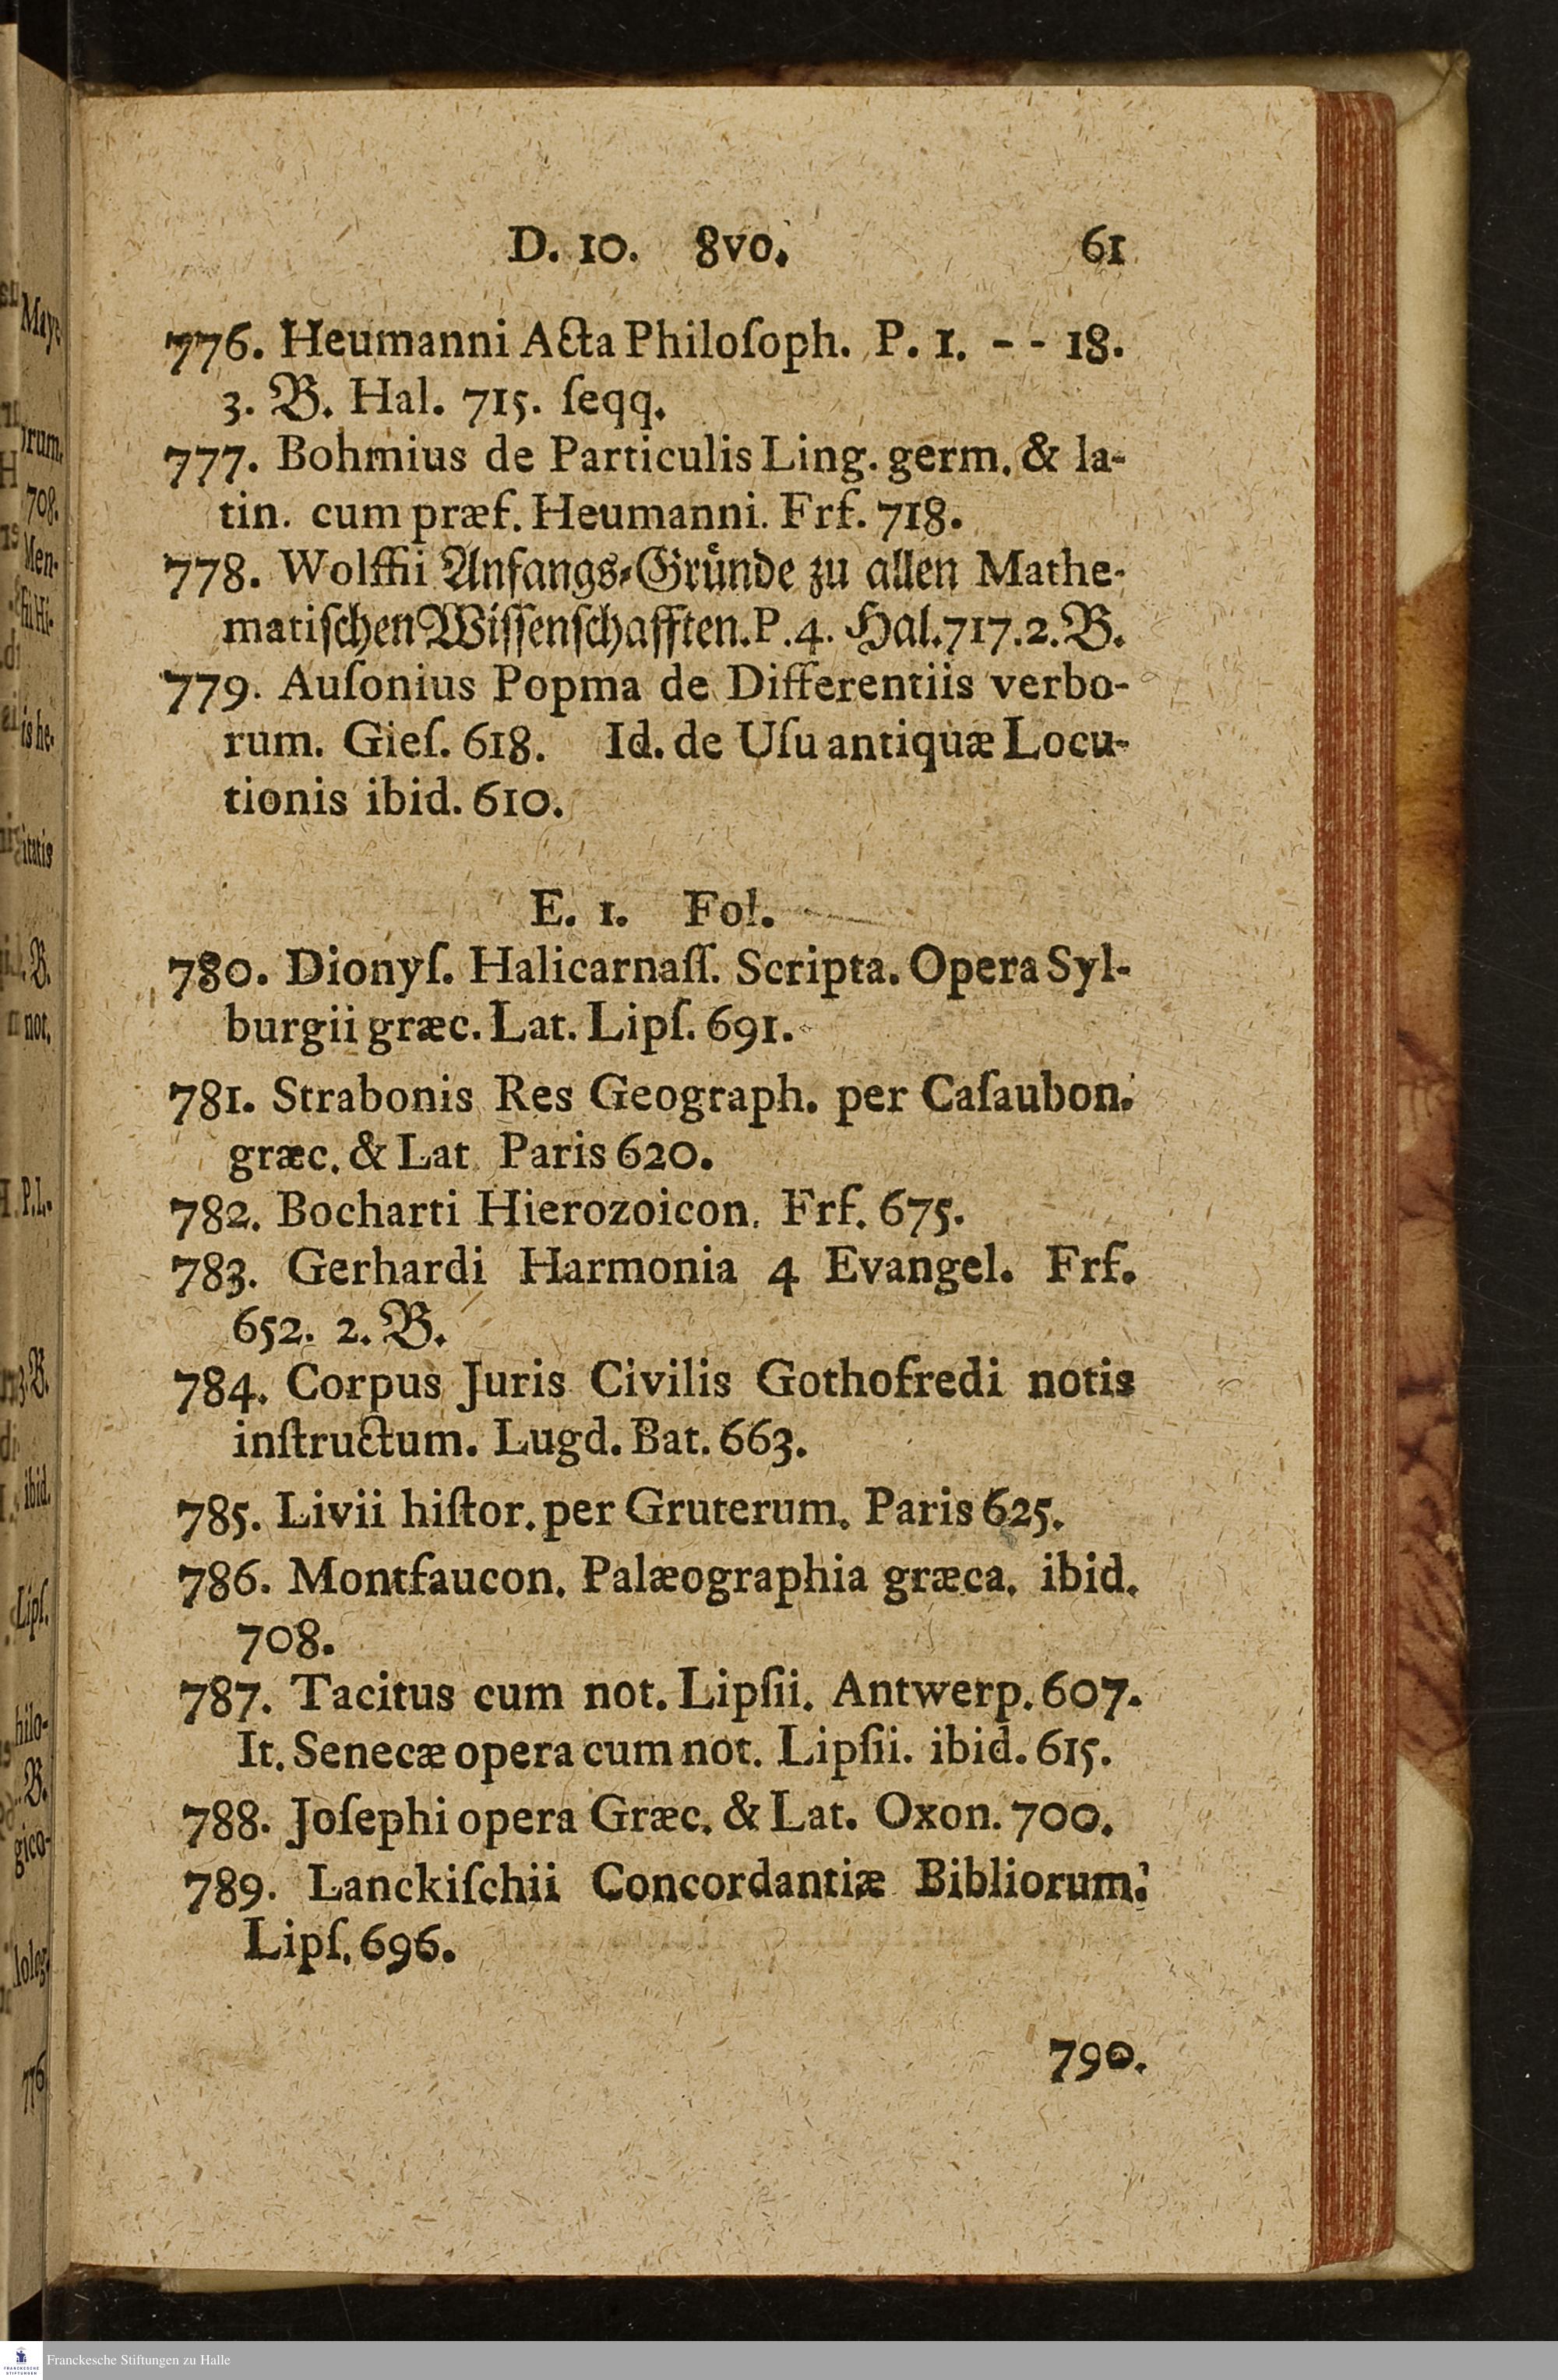 D. 10. 8vo. 61
776. Heumanni Acta Philoſoph. P. 1. - - 18.
3. B. Hal. 715. ſeqq.
777. Bohmius de Particulis Ling. germ. & la-
tin. cum præf. Heumanni. Frf. 718.
778. Wolffii Anfangs-Gründe zu allen Mathe-
matiſchen Wiſſenſchafften. P. 4. Hal. 717. 2. B.
779. Auſonius Popma de Differentiis verbo-
rum. Gieſ. 618. Id. de Uſu antiquæ Locu-
tionis ibid. 610.
E. 1. Fol.
780. Dionyſ. Halicarnaſſ. Scripta. Opera Syl-
burgii græc. Lat. Lipſ. 691.
781. Strabonis Res Geograph. per Caſaubon.
græc. & Lat Paris 620.
782. Bocharti Hierozoicon. Frf. 675.
783. Gerhardi Harmonia 4 Evangel. Frf.
652. 2. B.
784. Corpus Juris Civilis Gothofredi notis
inſtructum. Lugd. Bat. 663.
785. Livii hiſtor. per Gruterum. Paris 625.
786. Montfaucon. Palæographia græca. ibid.
708.
787. Tacitus cum not. Lipſii. Antwerp. 607.
It. Senecæ opera cum not. Lipſii. ibid. 615.
788. Joſephi opera Græc. & Lat. Oxon. 700.
789. Lanckiſchii Concordantiæ Bibliorum.
Lipſ. 696.
790.
Franckesche Stiftungen zu Halle